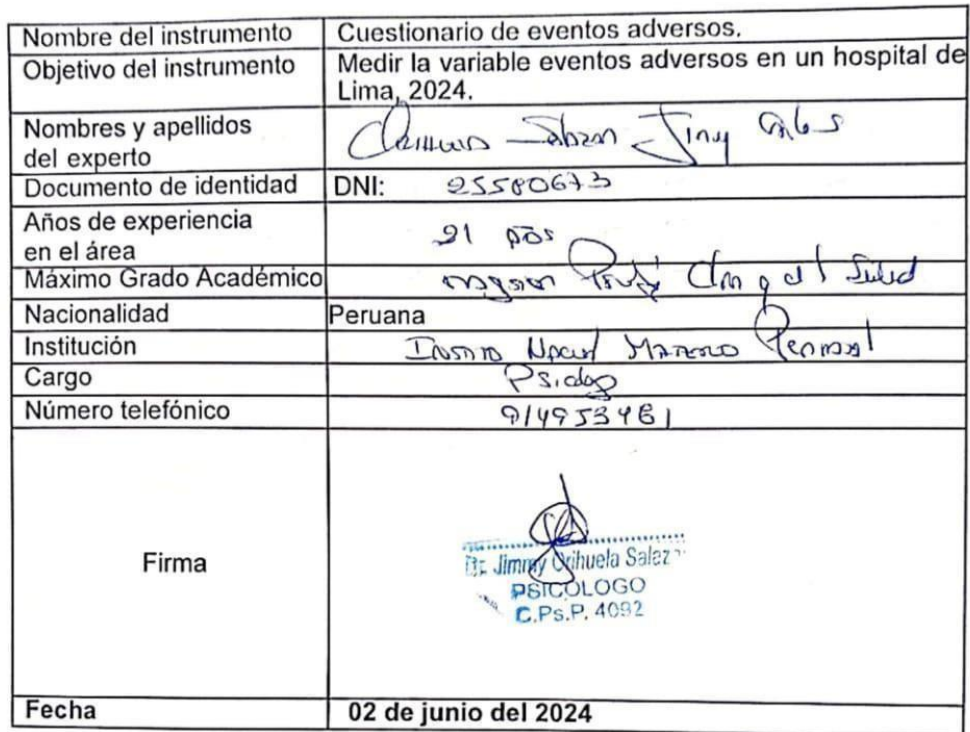 Nombre del instrumento Cuestionario de eventos adversos.
Objetivo del instrumento Medir la variable eventos adversos en un hospital de
Lima, 2024.
Nombres y apellidos
del experto
Documento de identidad DNI: 25580673
Años de experiencia
en el área
21 años
Máximo Grado Académico
Nacionalidad Peruana
Institución
Cargo Psicólogo
Número telefónico 914953461
Firma
Dr. Jimmy Orihuela Salaz
PSICOLOGO
C.Ps.P. 4092
Fecha 02 de junio del 2024